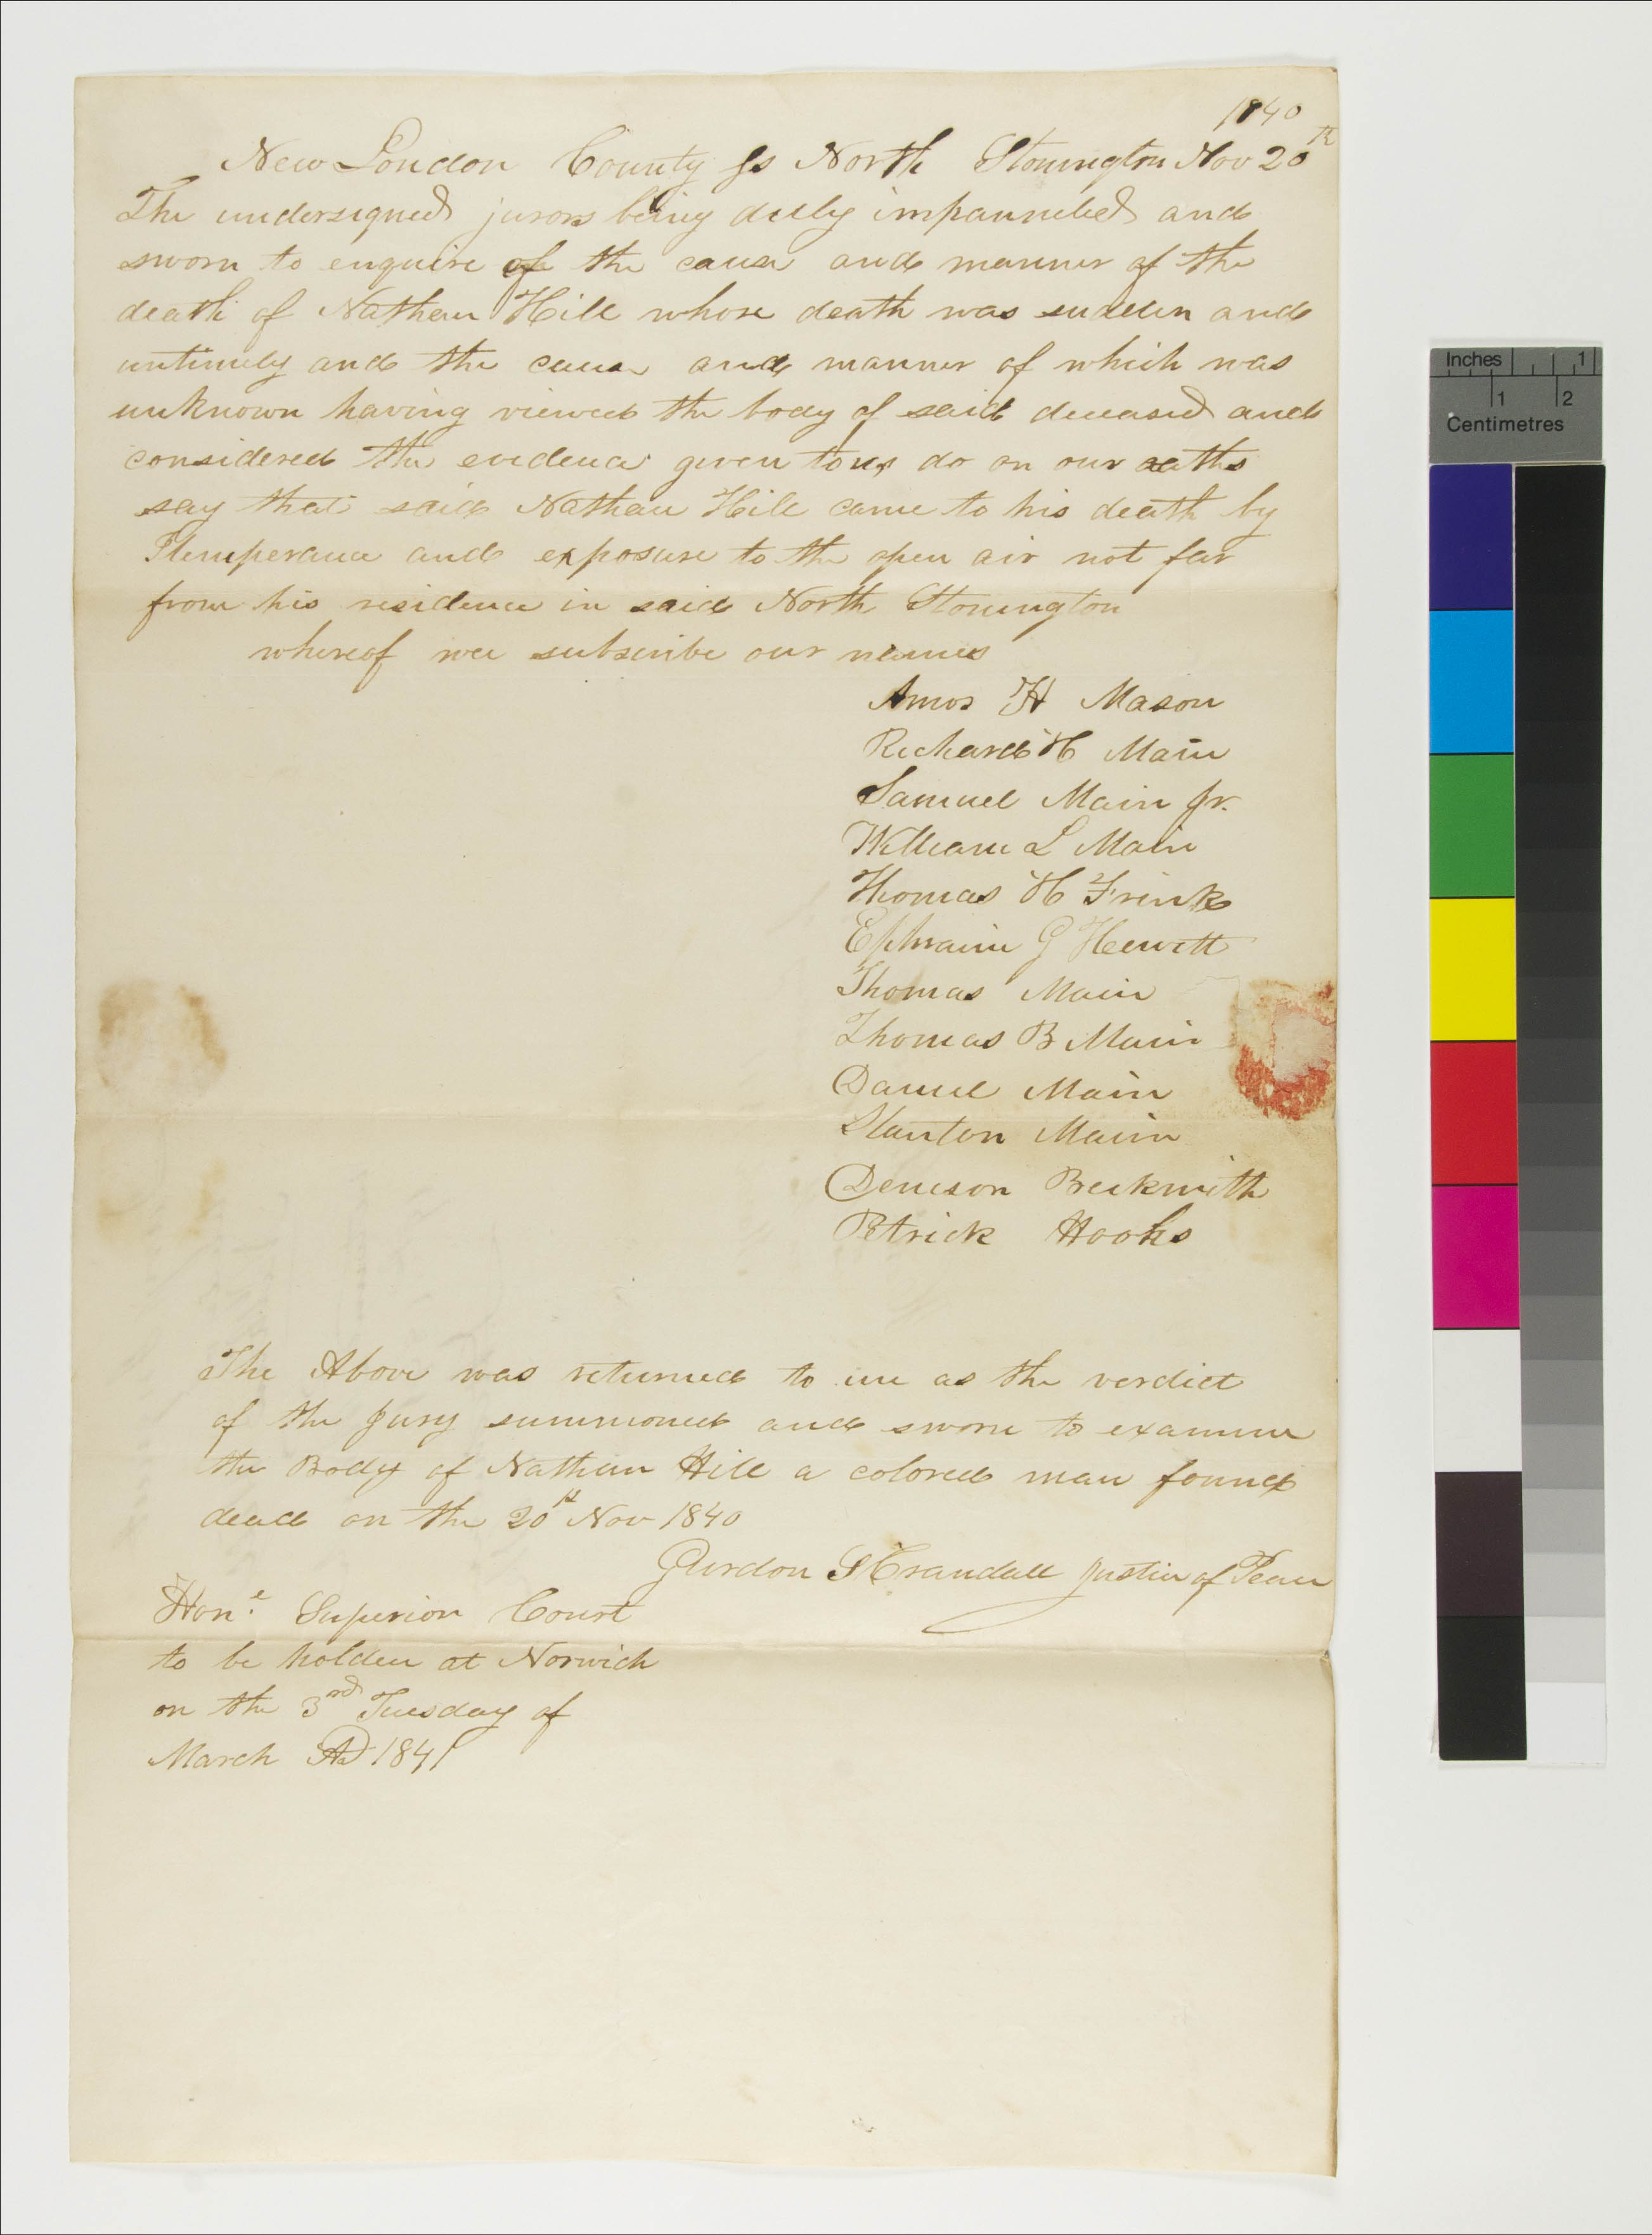 1840
New London County Ss North Stonington Nov 20th
The undersigned jurors being duly impannelled and
sworn to enquire of the cause and manner of the
death of Nathan Hill whose death was sudden and
untimely and the cause and manner of which was
unknown having viewed the body of said deceased and
considered the evidence given to us do on our oaths
say that said Nathan Hill came to his death by
Itemperance and exposure to the open air not far
from his residence in said North Stonington
whereof wee subscribe our names
Amos H Mason
Richard H Main
Samuel Main Jr.
William L Main
Thomas H Frink
Ephraim G Hewitt
Thomas Main
Thomas B Main
Daniel Main
Stanton Main
Denison Beckwith
Petrick Hooks
The Above was returned to me as the verdict
of the Jury summoned and sworn to examine
the Body of Nathan Hill a colored man found
dead on the 20st Nov 1840
Gurdon S Crandall Justice of Peace
Hone. Superior Court
to be holden at Norwich
on the 3rd Tuesday of
March AD 1841
Inches 1
1 2
Centimetres